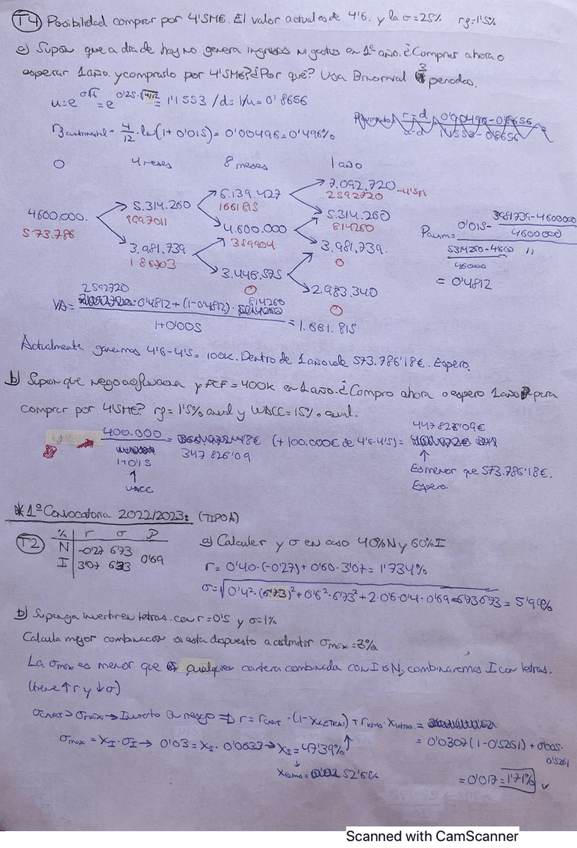 T4) Posibilidad comprar por 4'5M€. El valor actual es de 4'6. y la σ=25% rf=1'5%
a) Supon que a dia de hoy no genera ingresos negocios en 1º año. ¿Comprar ahora o
esperar 1 año. y comprarlo por 4'5M€? ¿Por qué? Usa Binomial 3 periodos.
u=e^σ√t = e^0'25·√4/12 = 1'1553 / d=1/u= 0'8656
= 4/12 · ln(1+0'015)= 0'00496=0'496%
0 4 meses 8 meses 1 año
7.092.720 -4'5M
2592720
6.139.427
1661815
5.314.260
1097011
5.314.260
814260
4600.000.
573.786
4.600.000
389904
3.981.739
186703
3.981.739.
0
3.446.575
0
2.983.340
0
0'015- 3981739-4600000 / 4600000
5314260-4600 / 460000
= 0'4812
VA= 2592720 · 0'4812 + (1-0'4812) · 814260 / 1+0'005 = 1.661.815
Actualmente ganamos 4'6-4'5= 100k. Dentro de 1 año de 573.786'18€. Espero.
b) Supon que negocio financia y FCF=400k en 1 año. ¿Compro ahora o espero 1 año para
comprar por 4'5M€? rf=1'5% anual y WACC=15% anual.
400.000 / 1+0'15 = 347826'09 (+100.000€ de 4'6-4'5)= 447826'09€
↑
WACC
↑
Es menor que 573.786'18€.
Espero.
* 1ª Convocatoria 2022/2023: (TIPO A)
T2) % r σ ρ
N -0'27 6'73
I 3'07 6'33 0'69
a) Calcular r y σ en caso 40%N y 60%I
r= 0'40·(-0'27)+0'60·3'07= 1'734%
σ=√0'4²·(6'73)²+0'6²·6'73²+2·0'6·0'4·0'69·6'73·6'73 = 5'99%
b) Suponga invertir en letras. con r=0'5 y σ=1%
Calcula mejor combinación si esta dispuesto a admitir σmax=3%
La σmax es menor que cualquier cartera combinada con I o N, combinaremos I con letras.
(tiene ↑r y ↓σ)
σcart>σmax→Invierto en riesgo ⇒ r= · (1- )+ =
= 0'0307(1-0'5261)+0'005·0'5261
σmax=XI·σI → 0'03=XI·0'0633→XI=47'39%
= 52'61%
=0'017=1'71%
Scanned with CamScanner